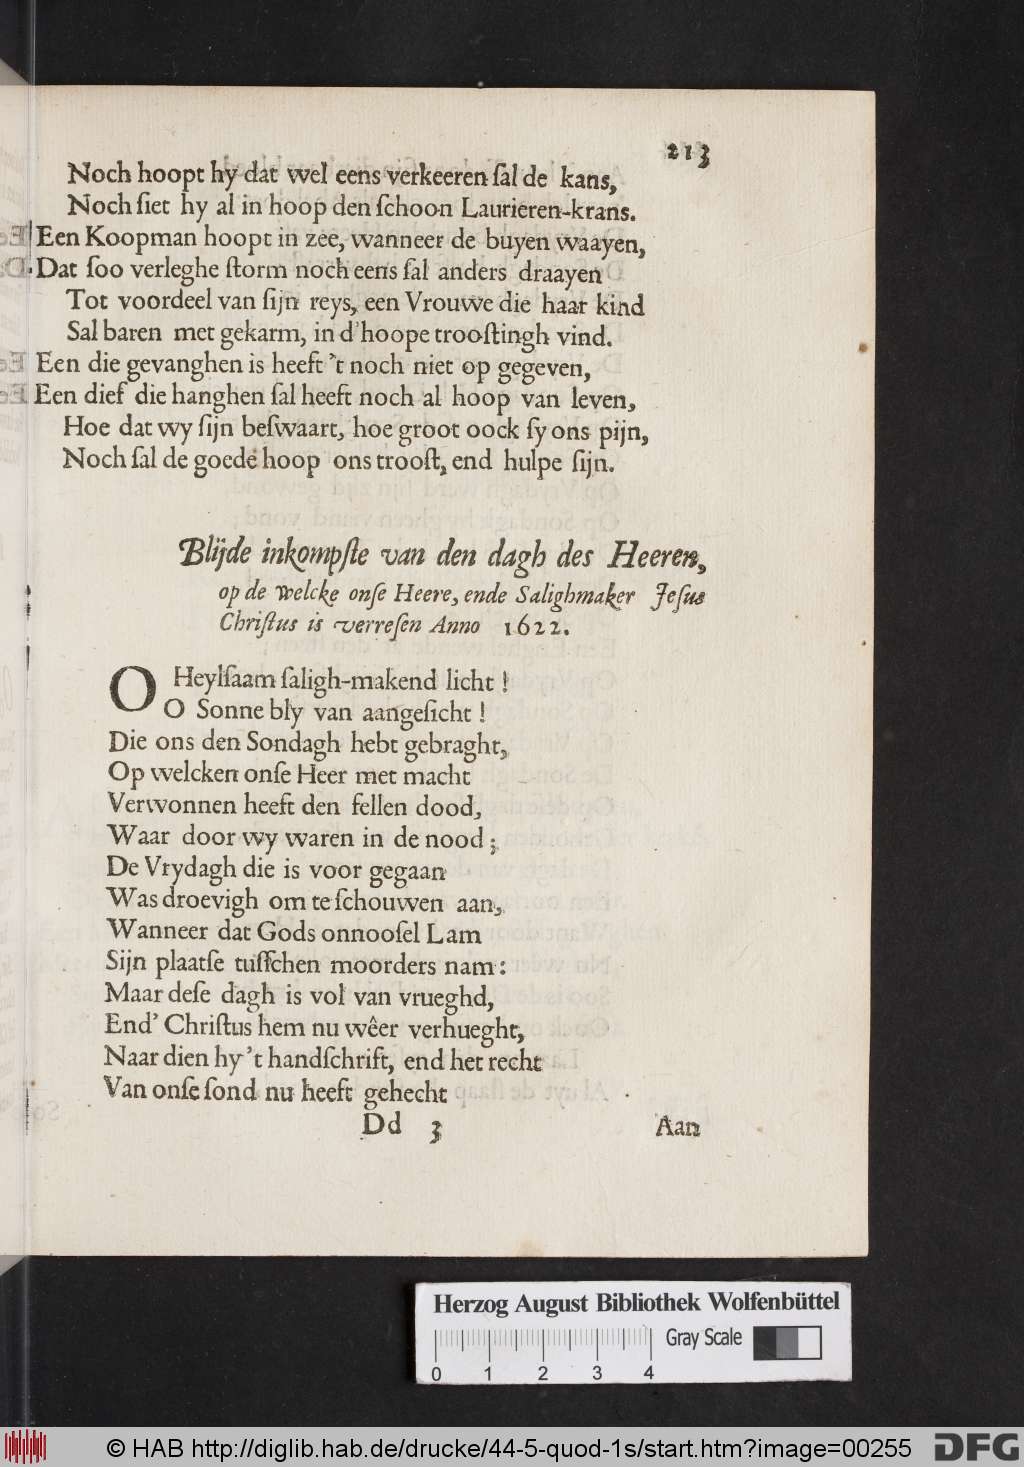 213
Noch hoopt hy dat wel eens verkeeren ſal de kans,
Noch ſiet hy al in hoop den ſchoon Laurieren-krans.
Een Koopman hoopt in zee, wanneer de buyen waayen,
Dat ſoo verleghe ſtorm noch eens ſal anders draayen
Tot voordeel van ſijn reys, een Vrouwe die haar kind
Sal baren met gekarm, in d'hoope trooſtingh vind.
Een die gevanghen is heeft 't noch niet op gegeven,
Een dief die hanghen ſal heeft noch al hoop van leven,
Hoe dat wy ſijn beſwaart, hoe groot oock ſy ons pijn,
Noch ſal de goede hoop ons trooſt, end hulpe ſijn.
Blijde inkompſte van den dagh des Heeren,
op de welcke onſe Heere, ende Salighmaker Jeſus
Chriſtus is verreſen Anno 1622.
O Heylſaam ſaligh-makend licht !
O Sonne bly van aangeſicht !
Die ons den Sondagh hebt gebraght,
Op welcken onſe Heer met macht
Verwonnen heeft den fellen dood,
Waar door wy waren in de nood ;
De Vrydagh die is voor gegaan
Was droevigh om te ſchouwen aan,
Wanneer dat Gods onnooſel Lam
Sijn plaatſe tuſſchen moorders nam :
Maar deſe dagh is vol van vrueghd,
End' Chriſtus hem nu wêer verhueght,
Naar dien hy 't handſchrift, end het recht
Van onſe ſond nu heeft gehecht
Dd 3 Aan
Herzog August Bibliothek Wolfenbüttel
Gray Scale
0 1 2 3 4
© HAB http://diglib.hab.de/drucke/44-5-quod-1s/start.htm?image=00255 DFG